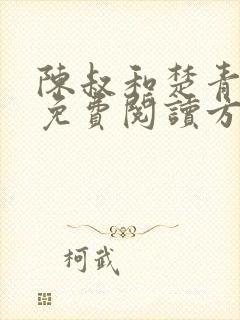 陳叔和楚青
免費閱讀方
柯武